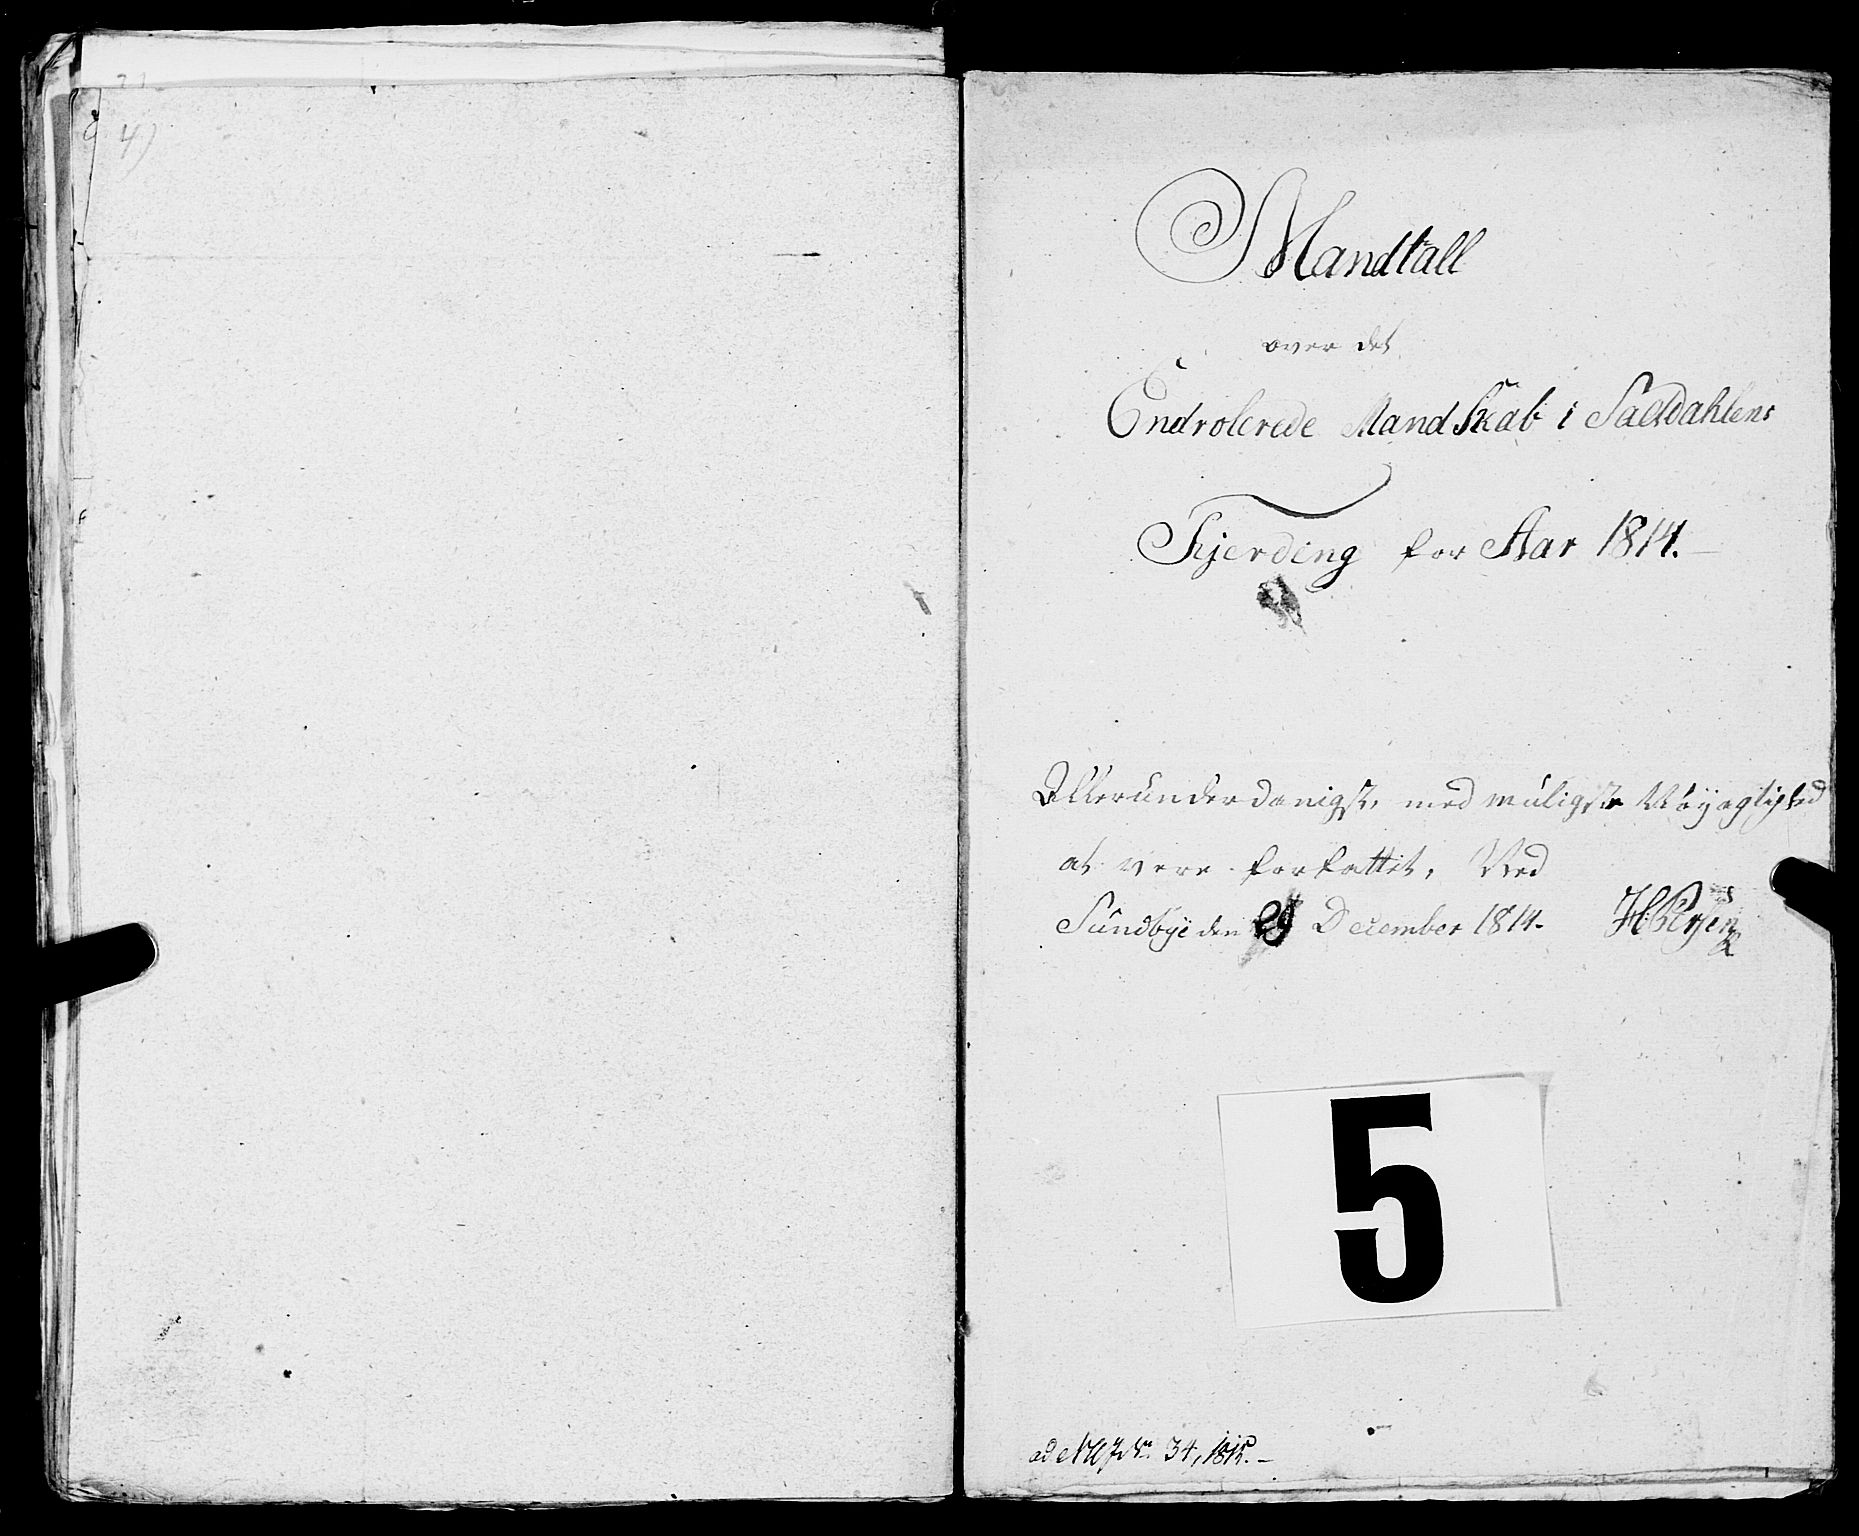 4)
Mandtall
over det
Endrolerede MandSkab i Saltdahlens
Fjerding for Aar 1814.
Allerunderdanigst, med muligste Nøyagtighed
at være forfattet, Ved
Sundbye den December 1814.
5
34, 1815.